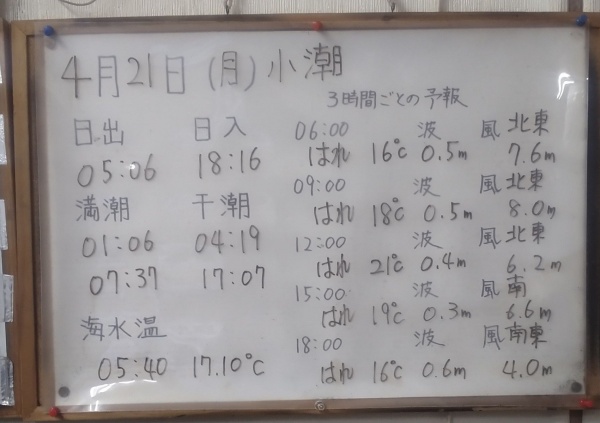 4月21日(月)小潮
日出 日入
05:06 18:16
満潮 干潮
01:06 04:19
07:37 17:07
海水温
05:40 17.10℃
3時間ごとの予報
06:00 波 風 北東
はれ 16℃ 0.5m 7.6m
09:00 波 風 北東
はれ 18℃ 0.5m 8.0m
12:00 波 風 北東
はれ 21℃ 0.4m 6.2m
15:00 波 風 南
はれ 19℃ 0.3m 6.6m
18:00 波 風 南東
はれ 16℃ 0.6m 4.0m